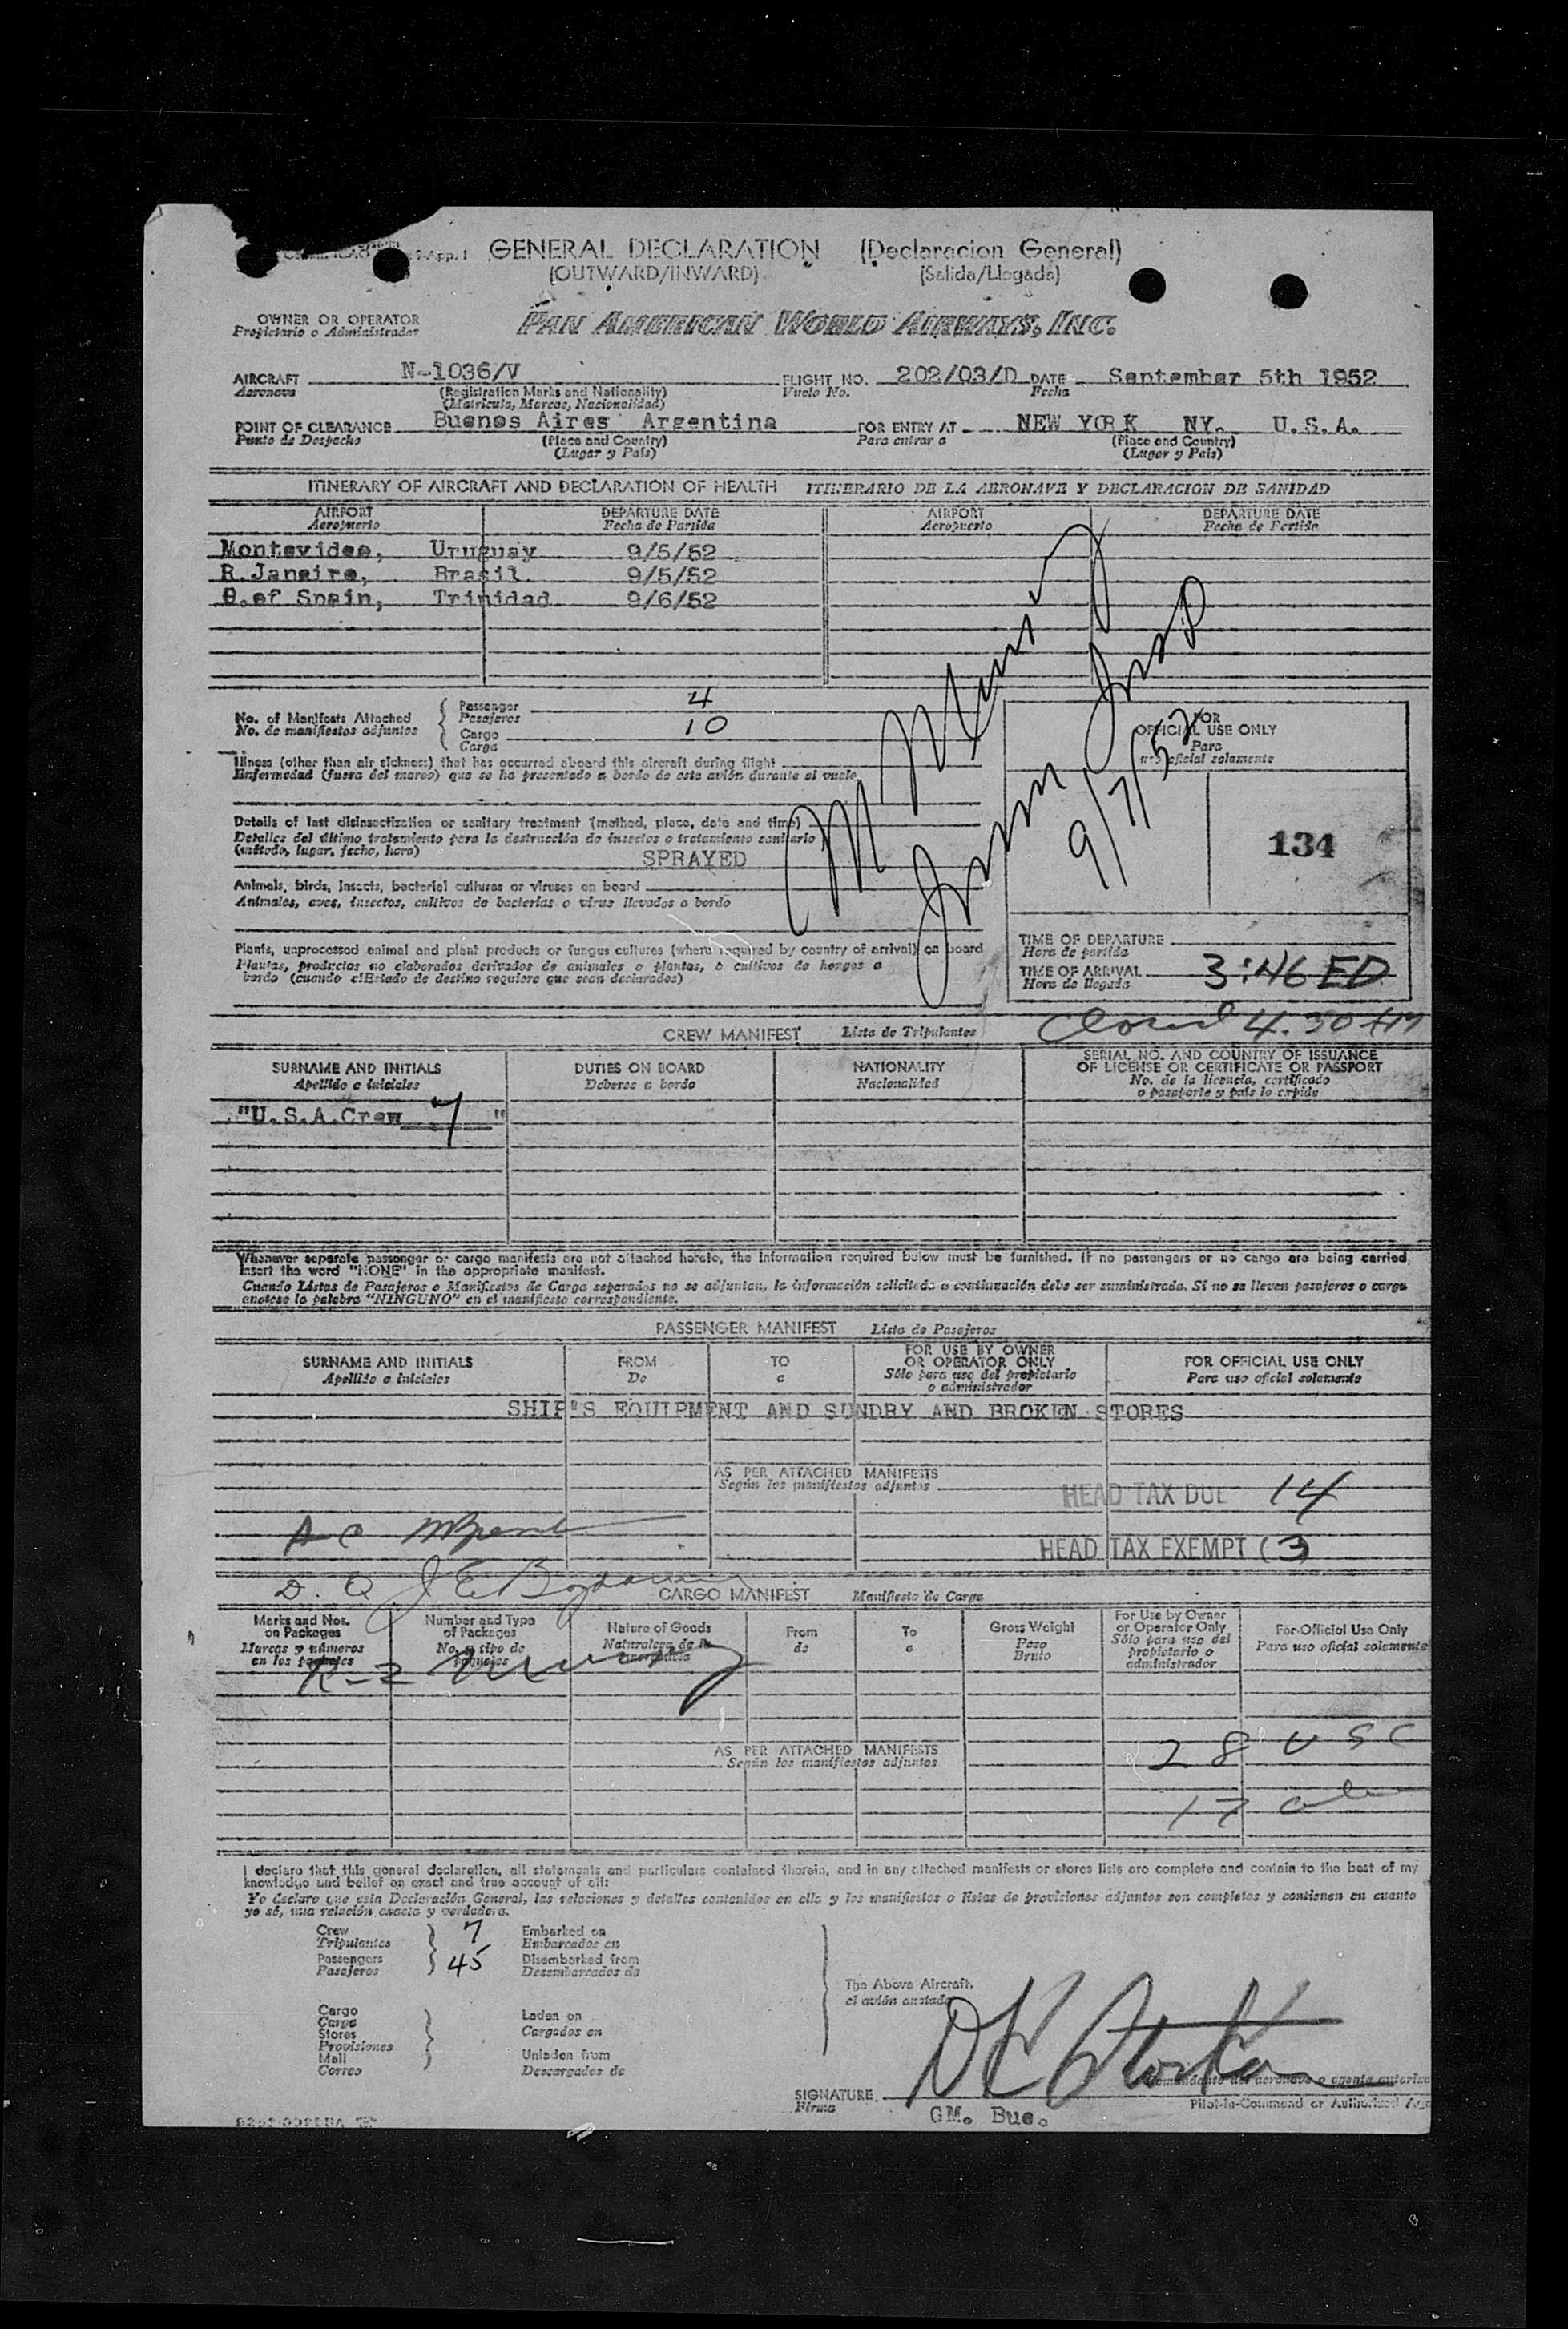 App. I GENERAL DECLARATION (Declaracion General)
(OUTWARD/INWARD) (Salida/Llegada)
OWNER OR OPERATOR
Propietario o Administrador
PAN AMERICAN WORLD AIRWAYS, INC.
AIRCRAFT N-1036/V FLIGHT NO. 202/03/D DATE September 5th 1952
Aeronave (Registration Marks and Nationality) Vuelo No. Fecha
(Matricula, Marcas, Nacionalidad)
POINT OF CLEARANCE Buenos Aires Argentina FOR ENTRY AT NEW YORK NY. U.S.A.
Punto de Despacho (Place and Country) Para entrar a (Place and Country)
(Lugar y País) (Lugar y País)
ITINERARY OF AIRCRAFT AND DECLARATION OF HEALTH ITINERARIO DE LA AERONAVE Y DECLARACION DE SANIDAD
AIRPORT DEPARTURE DATE AIRPORT DEPARTURE DATE
Aeropuerto Fecha de Partida Aeropuerto Fecha de Partida
Montevideo, Uruguay 9/5/52
R.Janeiro, Brasil 9/5/52
of Spain, Trinidad 9/6/52
No. of Manifests Attached
No. de manifiestos adjuntos
Passenger 4
Pasajeros
Cargo 10
Carga
FOR
OFFICIAL USE ONLY
Para
uso oficial solamente
9/7/52
134
Illness (other than air sickness) that has occurred aboard this aircraft during flight
Enfermedad (fuera del mareo) que se ha presentado a bordo de este avión durante el vuelo
Details of last disinsectization or sanitary treatment (method, place, date and time)
Detalles del último tratamiento para la destrucción de insectos o tratamiento sanitario
(método, lugar, fecha, hora)
SPRAYED
Animals, birds, insects, bacterial cultures or viruses on board
Animales, aves, insectos, cultivos de bacterias o virus llevados a bordo
Plants, unprocessed animal and plant products or fungus cultures (where required by country of arrival) on board
Plantas, productos no elaborados derivados de animales o plantas, o cultivos de hongos a
bordo (cuando el Estado de destino requiere que sean declarados)
TIME OF DEPARTURE
Hora de partida
TIME OF ARRIVAL 3:46 ED
Hora de llegada
Closed 4.30
CREW MANIFEST Lista de Tripulantes
SURNAME AND INITIALS DUTIES ON BOARD NATIONALITY SERIAL NO. AND COUNTRY OF ISSUANCE
Apellido e iniciales Deberes a bordo Nacionalidad OF LICENSE OR CERTIFICATE OR PASSPORT
No. de la licencia, certificado
o pasaporte y país lo expide
"U.S.A.Crew 7 "
Whenever separate passenger or cargo manifests are not attached hereto, the information required below must be furnished. If no passengers or no cargo are being carried,
insert the word "NONE" in the appropriate manifest.
Cuando Listas de Pasajeros o Manifiestos de Carga separados no se adjuntan, la información solicitada a continuación debe ser suministrada. Si no se lleven pasajeros o carga
anotese la palabra "NINGUNO" en el manifiesto correspondiente.
PASSENGER MANIFEST Lista de Pasajeros
SURNAME AND INITIALS FROM TO FOR USE BY OWNER OR OPERATOR ONLY FOR OFFICIAL USE ONLY
Apellido e iniciales De a Sólo para uso del propietario o administrador Para uso oficial solamente
SHIP'S EQUIPMENT AND SUNDRY AND BROKEN STORES
AS PER ATTACHED MANIFESTS
Según los manifiestos adjuntos
HEAD TAX DUE 14
HEAD TAX EXEMPT (3)
CARGO MANIFEST Manifiesto de Carga
Marks and Nos. on Packages Number and Type of Packages Nature of Goods From To Gross Weight For Use by Owner or Operator Only For Official Use Only
Marcas y números en los paquetes No. y tipo de paquetes Naturaleza de la mercancía de a Peso Bruto Sólo para uso del propietario o administrador Para uso oficial solamente
AS PER ATTACHED MANIFESTS
Según los manifiestos adjuntos
28 USC
17
I declare that this general declaration, all statements and particulars contained therein, and in any attached manifests or stores lists are complete and contain to the best of my
knowledge and belief an exact and true account of all:
Yo declaro que esta Declaración General, las relaciones y detalles contenidos en ella y los manifiestos o listas de provisiones adjuntos son completos y contienen en cuanto
yo sé, una relación exacta y verdadera.
Crew 7 Embarked on
Tripulantes Embarcados en
Passengers 45 Disembarked from
Pasajeros Desembarcados de
The Above Aircraft.
el avión anotado
Cargo Laden on
Carga Cargados en
Stores
Provisiones
Mail Unladen from
Correo Descargados de
SIGNATURE
Firma
Pilot-in-Command or Authorized
GM. Bue.